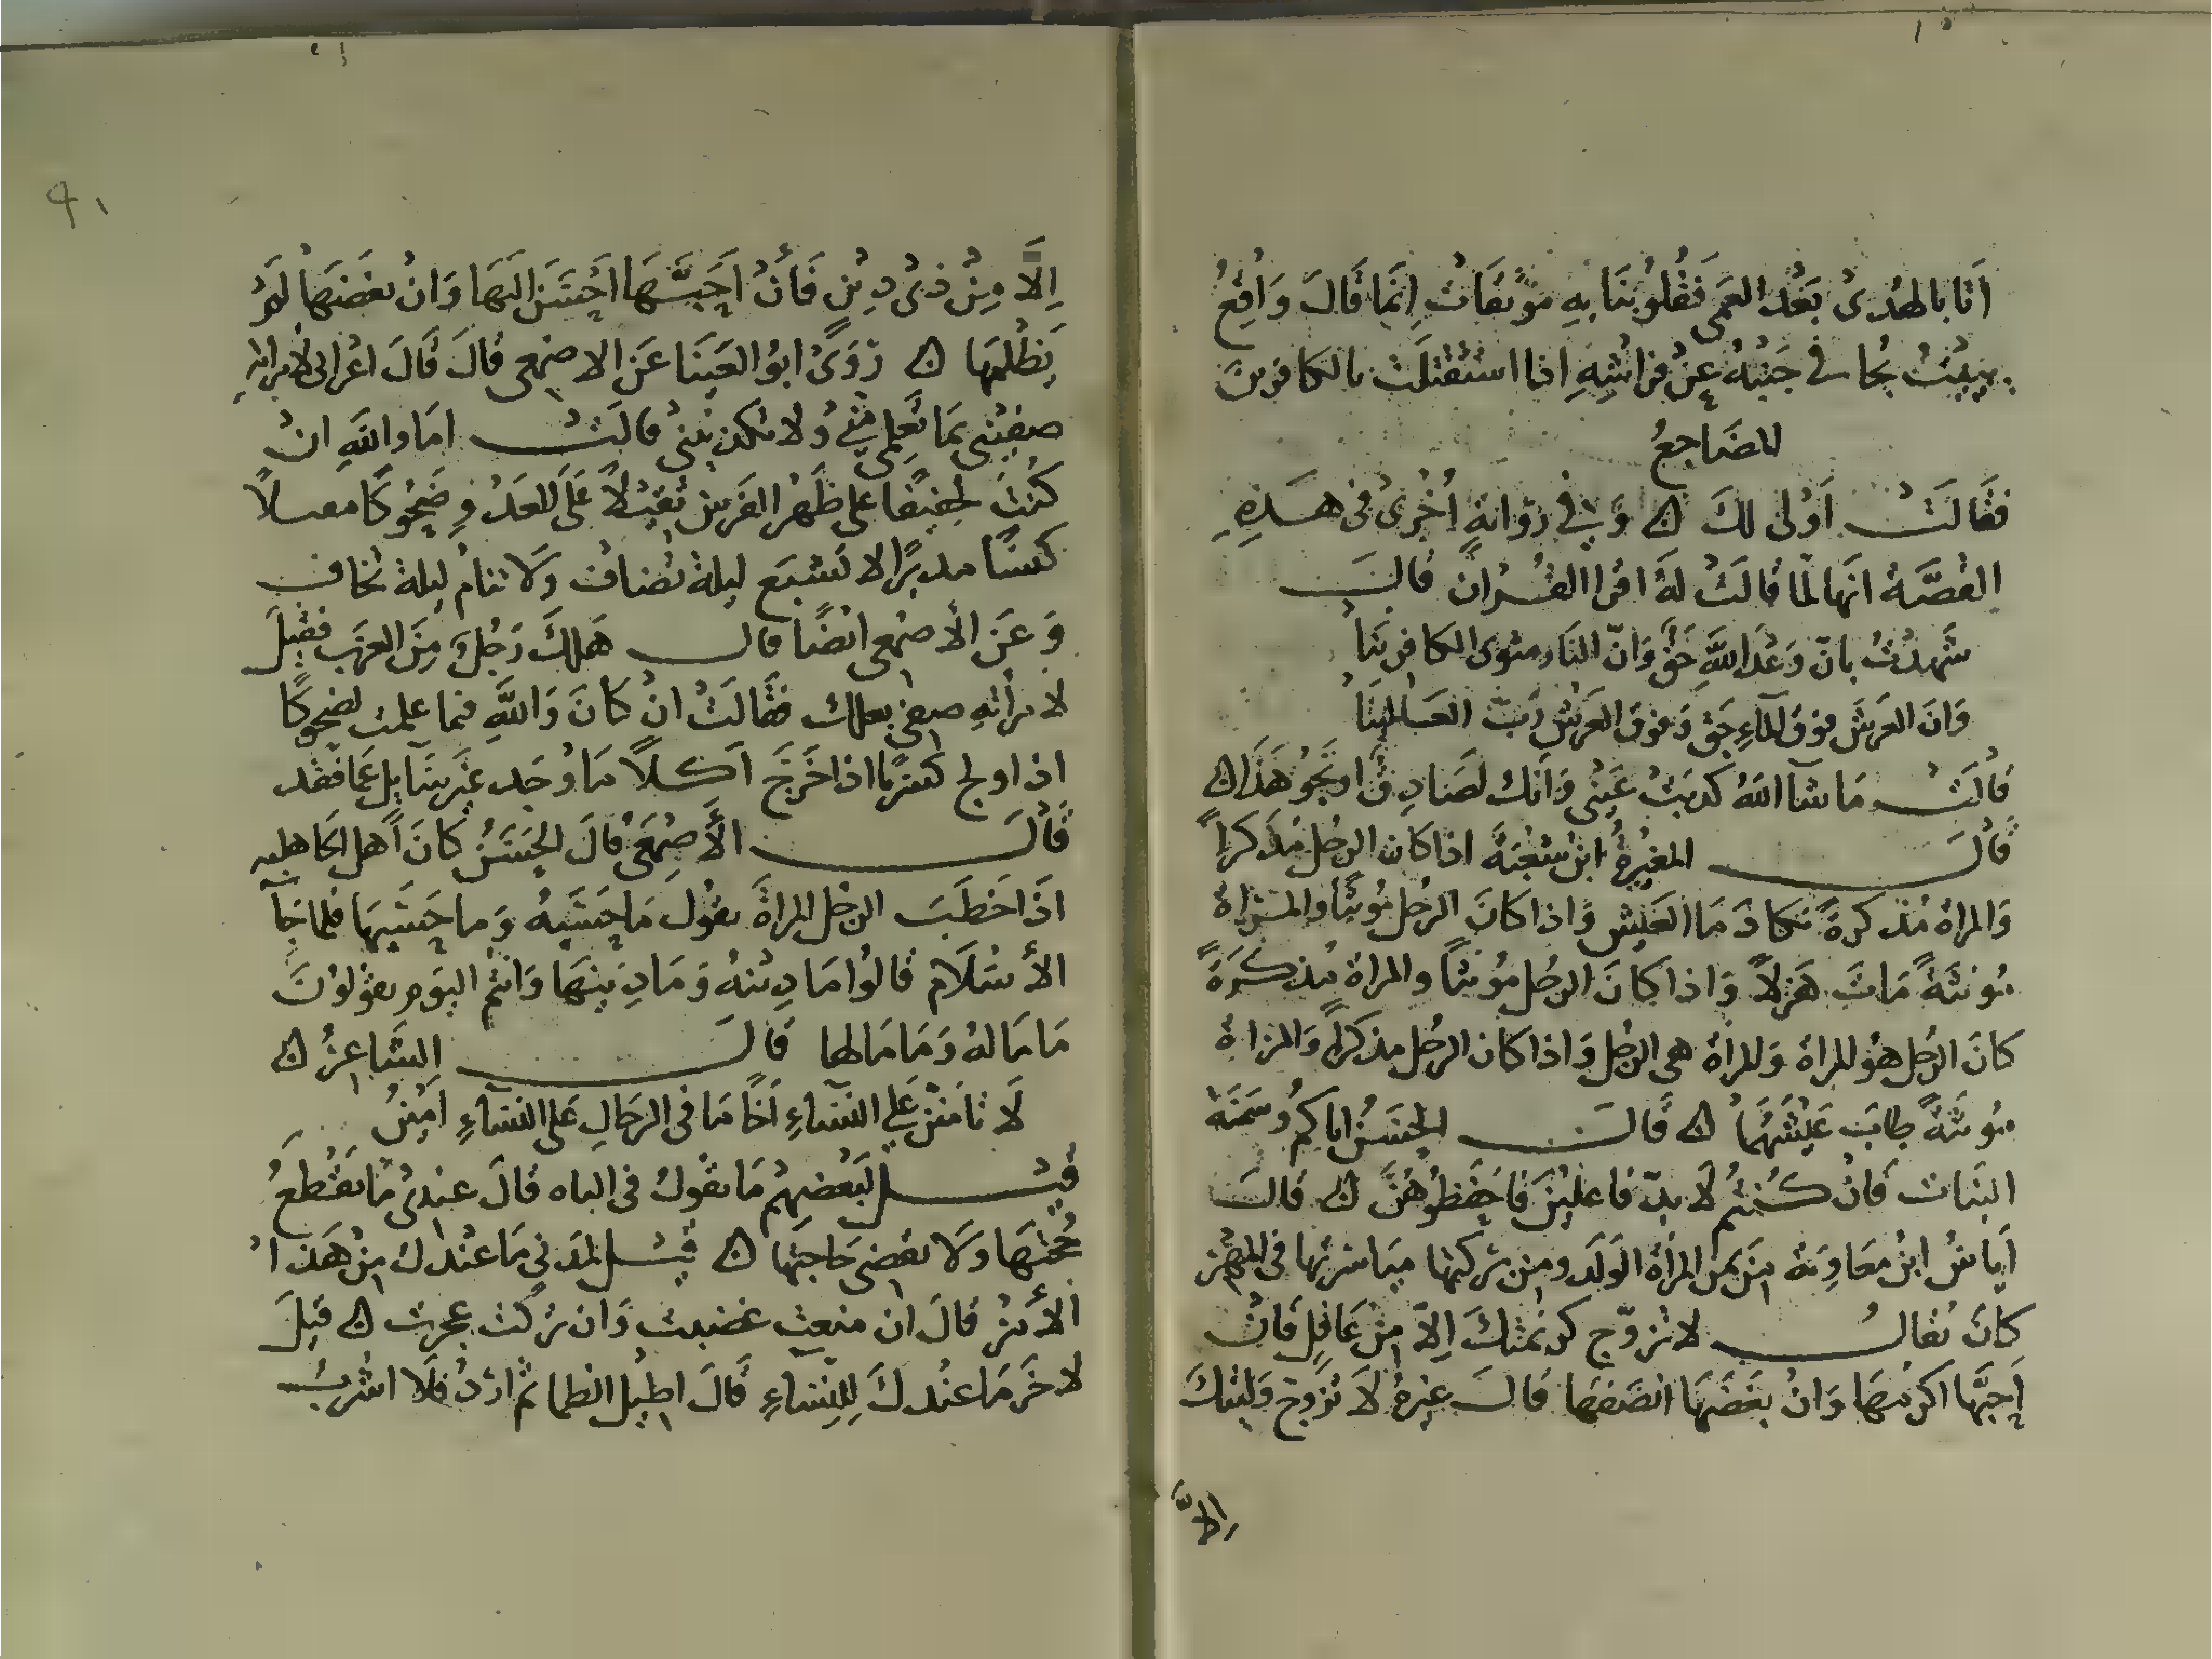 اتانا بالهدى بعد العمى فقلوبنا به موقنات انما قال واقع
يبيت يجافي جنبه عن فراشه اذا استثقلت بالكافرين
المضاجع
فقالت اولى لك ۞ وفي رواية اخرى في هذه
القصة انها لما قالت له اقرا القران قال
شهدت بان وعد الله حق وان النار مثوى الكافرينا
وان العرش فوق الماء حق وفوق العرش رب العالمينا
قالت ما شآ الله كذبت عيني وانك لصادق او نحو هذا ۞
قال المغيرة ابن شعبة اذا كان الرجل مذكرا
والمراة مذكرة تكادما العيش واذا كان الرجل مونثا والمراة
مونثة ماتا هزلا واذا كان الرجل مونثا والمراة مذكرة
كان الرجل هو المراة والمراة هي الرجل واذا كان الرجل مذكرا والمراة
مونثة طاب عيشهما ۞ قال الحسن اياكم وسمنة
البنات فان كنتم لا بد فاعلين فاحفظوهن ۞ قال
اياس ابن معاوية من يمن المراة الولد ومن بركتها مياسرتها في المهر
كان يقال لا تزوج كريمتك الا من عاقل فان
احبها اكرمها وان بغضها انصفها قال غيره لا تزوج وليتك
الا
٩١
الا من ذي دين فان احبها احسن اليها وان بغضها لم
يظلمها ۞ روى ابو العينا عن الاصمعي قال قال اعرابى لامراته
صفيني بما تعلمي في ولا تكذبيني قالت اما والله ان
كنت لخفيفا على ظهر الفرس ثقيلا على العدو ضحوكا مقبلا
كسبا مدبرا لا تشبع ليلة تضاف ولا تنام ليلة تخاف
وعن الاصمعي ايضا قال هلك رجل من العرب فقيل
لامراته صفي بعلك فقالت ان كان والله فيما علمت لضحوكا
اذا ولج كسوبا اذا خرج آكلا ما وجد غير سآيل عما فقد
قال الاصمعي قال الحسن كان اهل الجاهليه
اذا خطب الرجل المراة يقول ما حسبه وما حسبها فلما جآ
الاسلام قالوا ما دينه وما دينها وانتم اليوم يقولون
ما ماله وما مالها قال الشاعر ۞
لا تامنن على النساء اخا ما في الرجال على النساء امين
قيل لبعضهم ما تقول في الباه قال عندي ما يقطع
حجتها ولا يقضي حاجتها ۞ قيل لمدني ما عندك من هذا
الامر قال ان منعت غضبت وان تركت عجزت ۞ قيل
لاخر ما عندك للنساء قال اطيل الظما ثم ارد فلا اشرب